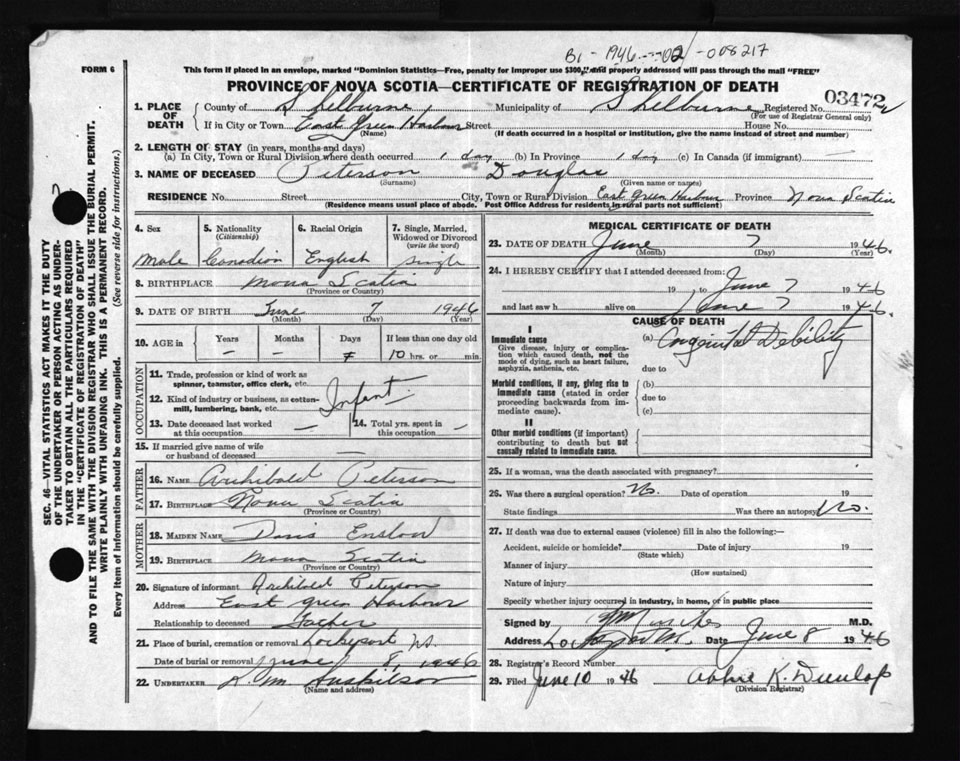 B1-1946-02-008217
FORM 6
This form if placed in an envelope, marked "Dominion Statistics—Free, penalty for improper use $300," and properly addressed will pass through the mail "FREE"
PROVINCE OF NOVA SCOTIA—CERTIFICATE OF REGISTRATION OF DEATH
1. PLACE OF DEATH County of Shelburne Municipality of Shelburne Registered No. 03472
(For use of Registrar General only)
If in City or Town East Green Harbour Street House No.
(Name) (If death occurred in a hospital or institution, give the name instead of street and number)
2. LENGTH OF STAY (in years, months and days)
(a) In City, Town or Rural Division where death occurred 1 day (b) In Province 1 day (c) In Canada (if immigrant) —
3. NAME OF DECEASED Peterson Douglas
(Surname) (Given name or names)
RESIDENCE No. Street City, Town or Rural Division East Green Harbour Province Nova Scotia
(Residence means usual place of abode. Post Office Address for residents in rural parts not sufficient)
4. Sex 5. Nationality (Citizenship) 6. Racial Origin 7. Single, Married, Widowed or Divorced (write the word)
Male Canadian English Single
8. BIRTHPLACE Nova Scotia
(Province or Country)
9. DATE OF BIRTH June 7 1946
(Month) (Day) (Year)
10. AGE in Years Months Days If less than one day old
— — 10 hrs. or min.
OCCUPATION
11. Trade, profession or kind of work as spinner, teamster, office clerk, etc.
12. Kind of industry or business, as cotton-mill, lumbering, bank, etc. Infant
13. Date deceased last worked at this occupation — 14. Total yrs. spent in this occupation —
15. If married give name of wife or husband of deceased
FATHER
16. NAME Archibald Peterson
17. BIRTHPLACE Nova Scotia
(Province or Country)
MOTHER
18. MAIDEN NAME Doris Enslow
19. BIRTHPLACE Nova Scotia
(Province or Country)
20. Signature of informant Archibald Peterson
Address East Green Harbour
Relationship to deceased Father
21. Place of burial, cremation or removal Lockeport NS
Date of burial or removal June 8, 1946
22. UNDERTAKER
(Name and address)
MEDICAL CERTIFICATE OF DEATH
23. DATE OF DEATH June 7 1946.
(Month) (Day) (Year)
24. I HEREBY CERTIFY that I attended deceased from:
19 to June 7 1946
and last saw h alive on June 7 1946.
CAUSE OF DEATH
I
Immediate cause
Give disease, injury or complication which caused death, not the mode of dying, such as heart failure, asphyxia, asthenia, etc.
(a) Congenital Debility
due to
Morbid conditions, if any, giving rise to immediate cause (stated in order proceeding backwards from immediate cause).
(b)
due to
(c)
II
Other morbid conditions (if important) contributing to death but not causally related to immediate cause.
25. If a woman, was the death associated with pregnancy?
26. Was there a surgical operation? No. Date of operation 19
State findings Was there an autopsy No.
27. If death was due to external causes (violence) fill in also the following:—
Accident, suicide or homicide? Date of injury 19
(State which)
Manner of injury
(How sustained)
Nature of injury
Specify whether injury occurred in industry, in home, or in public place
Signed by M.D.
Address Date June 8 1946
28. Registrar's Record Number
29. Filed June 10 1946 Abbie K. Dunlop
(Division Registrar)
SEC. 46—VITAL STATISTICS ACT MAKES IT THE DUTY
OF THE UNDERTAKER OR PERSON ACTING AS UNDER-
TAKER TO OBTAIN ALL THE PARTICULARS REQUIRED
IN THE "CERTIFICATE OF REGISTRATION OF DEATH"
AND TO FILE THE SAME WITH THE DIVISION REGISTRAR WHO SHALL ISSUE THE BURIAL PERMIT.
WRITE PLAINLY WITH UNFADING INK. THIS IS A PERMANENT RECORD.
Every item of information should be carefully supplied. (See reverse side for instructions.)